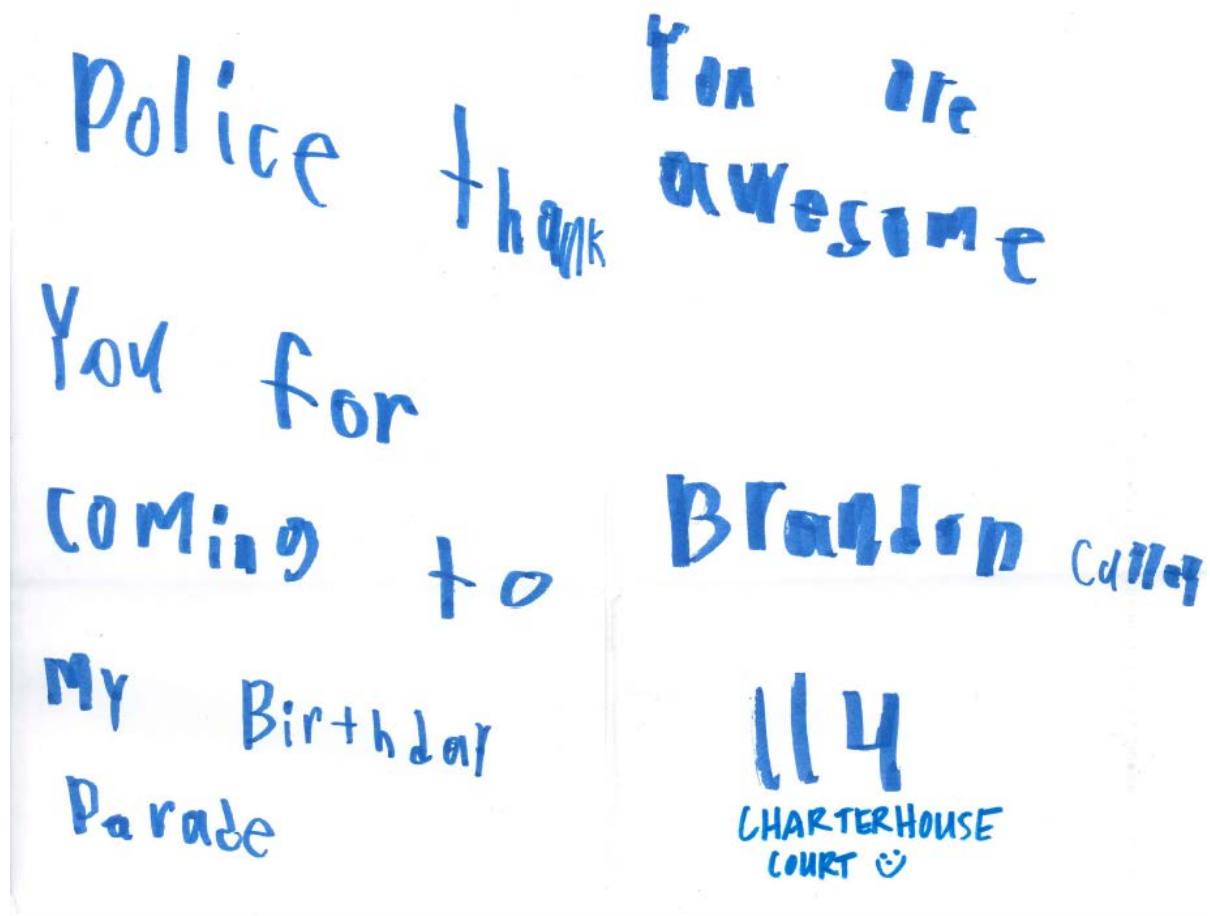 Police thank
You for
coming to
My Birthday
Parade
You are
awesome
Brandon
114
CHARTERHOUSE
COURT